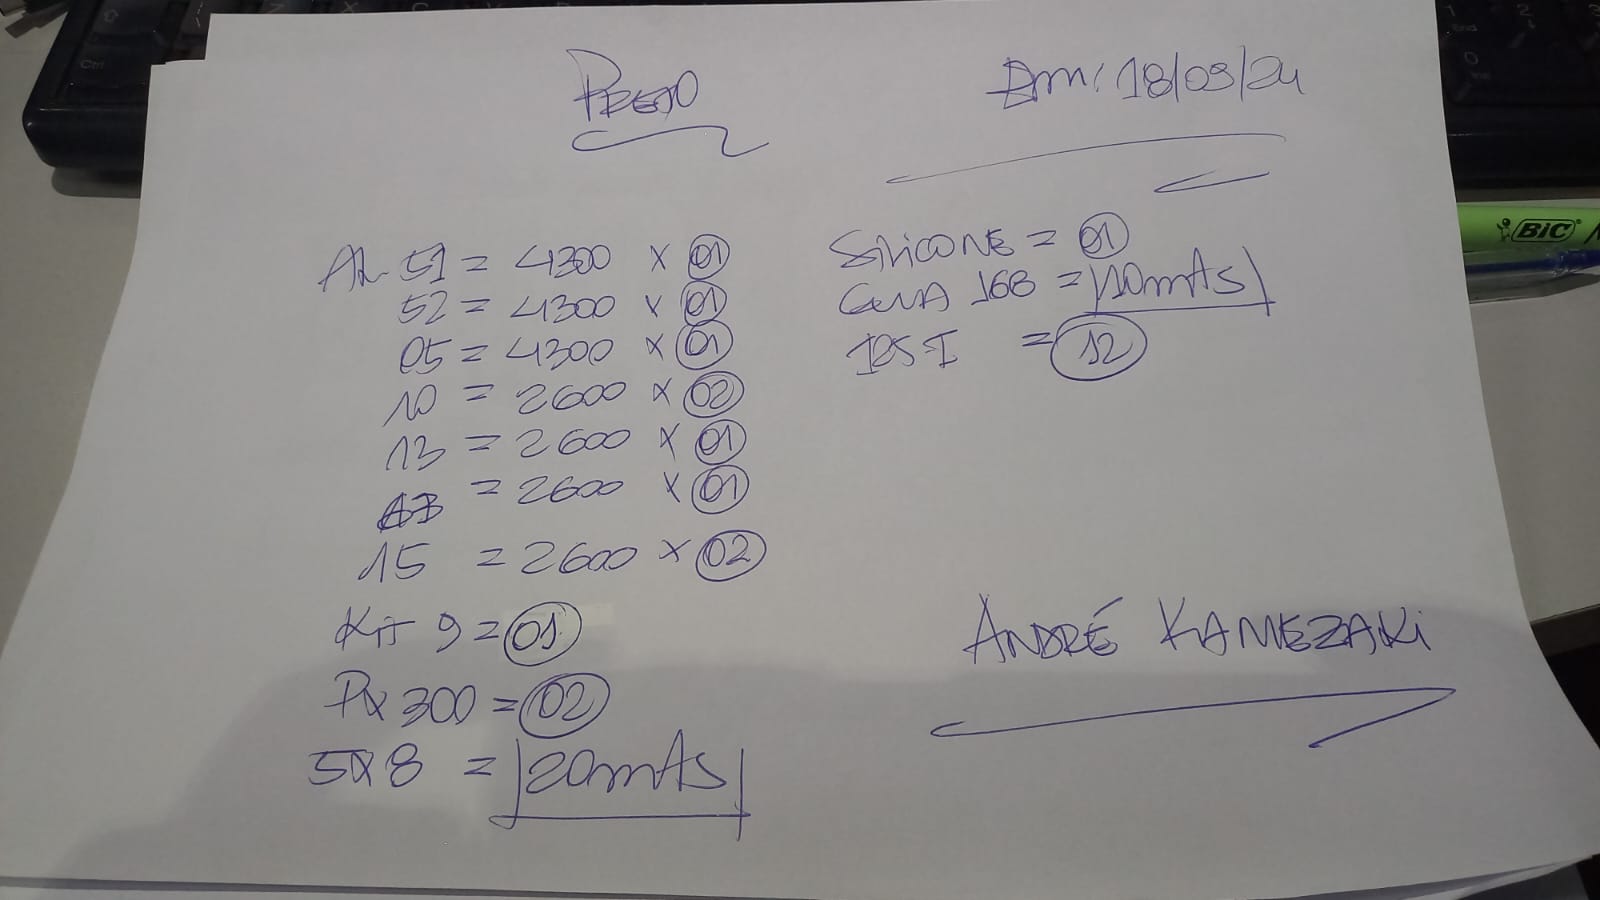 PRETO
Em: 18/09/24
AL 51 = 4300 x 01
52 = 4300 x 01
05 = 4300 x 01
10 = 2600 x 02
13 = 2600 x 01
= 2600 x 01
15 = 2600 x 02
Kit 9 = 01
PX 300 = 02
5X8 = 20mts
SILICONE = 01
GUIA 168 = 10mts
= 12
ANDRÉ KAMEZAKI
BIC
Ctrl